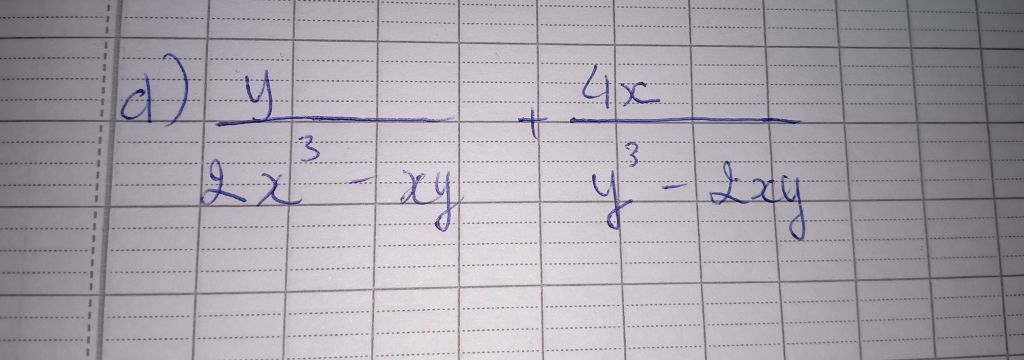 d) y/(2x³ - xy) + 4x/(y³ - 2xy)